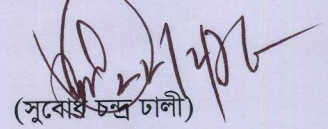 (সুবোধ চন্দ্র ঢালী)